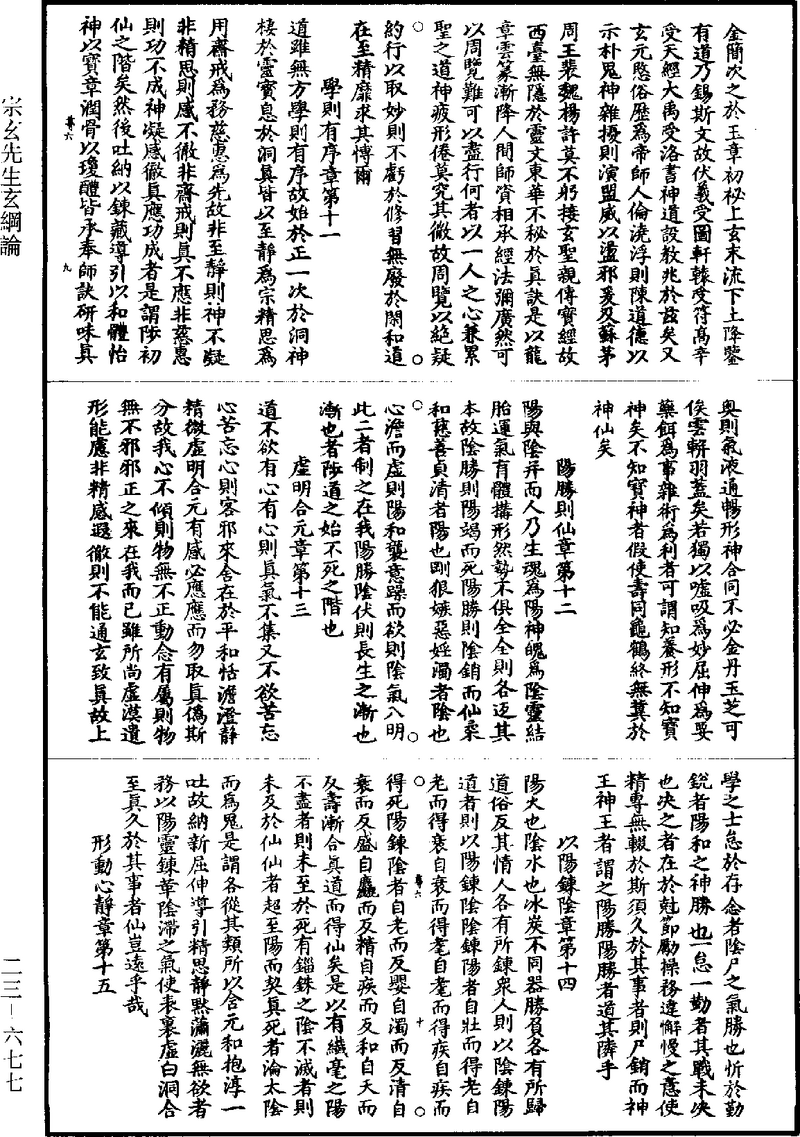 宗玄先生玄綱論
二三—六七七
金簡次之於玉章初秘上玄末流下土降鑒
有道乃錫斯文故伏羲受圖軒轅受符高辛
受天經大禹受洛書神道設教兆於茲矣又
玄元愍俗歷爲帝師人倫澆浮則陳道德以
示朴鬼神雜擾則演盟威以盪邪爰及蘇茅
周王裴魏楊許莫不躬接玄聖親傳寶經故
西臺無隱於靈文東華不秘於眞訣是以龍
章雲篆漸降人間師資相承經法彌廣然可
以周覽難可以盡行何者以一人之心兼累
聖之道神疲形倦莫究其微故周覽以絕疑
約行以取妙則不虧於修習無廢於閑和道
在至精靡求其博爾
學則有序章第十一
道雖無方學則有序故始於正一次於洞神
棲於靈寶息於洞眞皆以至靜爲宗精思爲
用齋戒爲務慈惠爲先故非至靜則神不凝
非精思則感不徹非齋戒則眞不應非慈惠
則功不成神凝感徹眞應功成者是謂陟初
仙之階矣然後吐納以鍊藏導引以和體怡
神以寶章潤骨以瓊醴皆承奉師訣研味眞
尊六
九
奥則氣液通暢形神合同不必金丹玉芝可
俟雲軿羽蓋矣若獨以噓吸爲妙屈伸爲要
藥餌爲事雜術爲利者可謂知養形不知寶
神矣不知寶神者假使壽同龜鶴終無冀於
神仙矣
陽勝則仙章第十二
陽與陰并而人乃生魂爲陽神魄爲陰靈結
胎運氣育體搆形然勢不俱全全則各返其
本故陰勝則陽竭而死陽勝則陰銷而仙柔
和慈善貞清者陽也剛狠嫉惡婬濁者陰也
心澹而虛則陽和襲意躁而欲則陰氣入明
此二者制之在我陽勝陰伏則長生之漸也
漸也者陟道之始不死之階也
虛明合元章第十三
道不欲有心有心則眞氣不集又不欲苦忘
心苦忘心則客邪來舍在於平和恬澹澄靜
精微虛明合元有感必應應而勿取眞僞斯
分故我心不傾則物無不正動念有屬則物
無不邪邪正之來在我而已雖所尚虛漠遺
形能慮非精感遐徹則不能通玄致眞故上
學之士怠於存念者陰尸之氣勝也忻於勤
銳者陽和之神勝也一怠一勤者其戰未決
也決之者在於尅節勵操務違懈慢之意使
精專無輟於斯須久於其事者則尸銷而神
王神王者謂之陽勝陽勝者道其隣乎
以陽鍊陰章第十四
陽火也陰水也冰炭不同器勝負各有所歸
道俗反其情人各有所鍊衆人則以陰鍊陽
道者則以陽鍊陰陰鍊陽者自壯而得老自
老而得衰自衰而得耄自耄而得疾自疾而
尊六
十
得死陽鍊陰者自老而反嬰自濁而反清自
衰而反盛自麤而反精自疾而反和自夭而
反壽漸合眞道而得仙矣是以有纖毫之陽
不盡者則未至於死有錙銖之陰不滅者則
未及於仙仙者超至陽而契眞死者淪太陰
而爲鬼是謂各從其類所以含元和抱淳一
吐故納新屈伸導引精思靜默瀟灑無欲者
務以陽靈鍊革陰滯之氣使表裏虛白洞合
至眞久於其事者仙豈遠乎哉
形動心靜章第十五